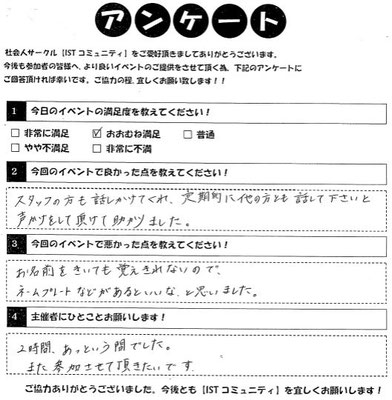 アンケート
社会人サークル【ISTコミュニティ】をご愛好頂きましてありがとうございます。
今後も参加者の皆様へ、より良いイベントのご提供をさせて頂く為、下記のアンケートに
ご回答頂ければ幸いです。ご協力の程、宜しくお願い致します！！
1 今日のイベントの満足度を教えてください！
□ 非常に満足 ☑ おおむね満足 □ 普通
□ やや不満足 □ 非常に不満
2 今回のイベントで良かった点を教えてください！
スタッフの方も話しかけてくれ、定期的に他の方とも話して下さいと
声かけをして頂けて助かりました。
3 今回のイベントで悪かった点を教えてください！
お名前をきいても覚えきれないので、
ネームプレートなどがあるといいな、と思いました。
4 主催者にひとことお願いします！
2時間、あっという間でした。
また参加させて頂きたいです。
ご協力ありがとうございました。今後とも【ISTコミュニティ】を宜しくお願いします！